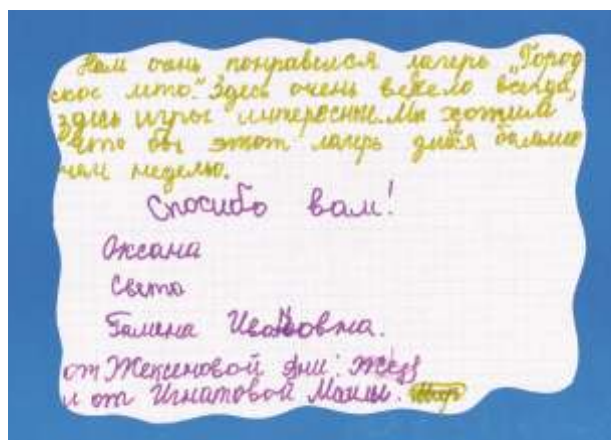 Нам очень понравился лагерь „Город
ское лето." Здесь очень весело всегда,
здесь игры интересные. Мы хотим
что бы этот лагерь дился больше
чем неделю.
Спосибо вам!
Оксана
Света
Галина Ивановна.
от Жексеновой Яни:
и от Игнатовой Маши.